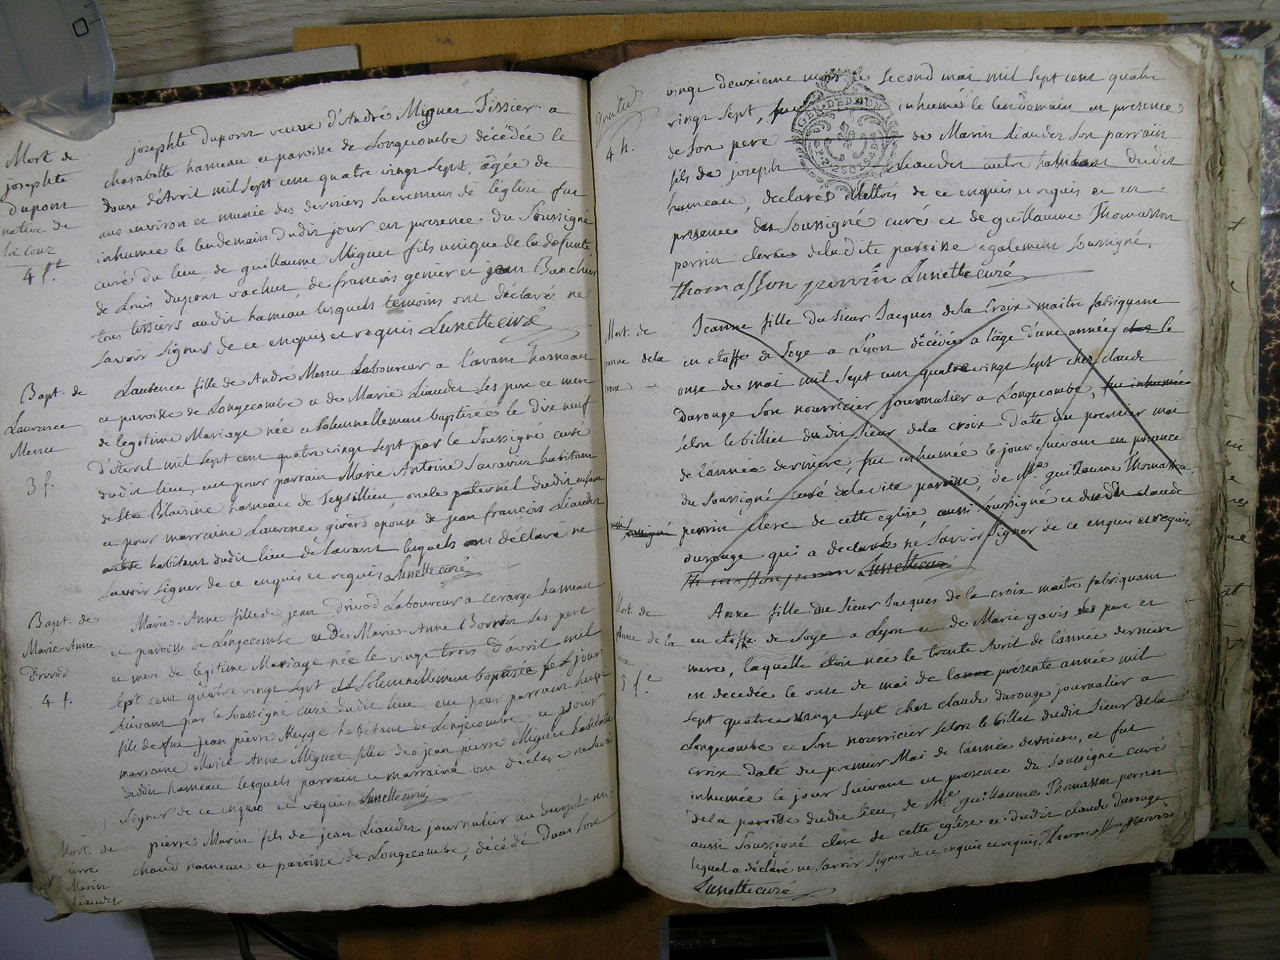 Mort de
josephte
dupont
native de
la cour
4 f.
josephte dupont veuve d'André Miguet Tissier a
charabotte hameau et paroisse de Longecombe décédée le
douse d'avril mil sept cent quatre vingt sept, âgée de
ans environ et munie des derniers sacremens de l'église fut
inhumée le lendemain dudit jour en presence du soussigné
curé du lieu, de guillaume Miguet fils unique de la defunte
de Louis dupont vacher, de francois genier et jean
tous tessiers audit hameau lesquels temoins ont déclaré ne
savoir signer de ce enquis et requis Lunette curé
Bapt. de
Laurence
Merme
3 f.
Laurence fille de André Merme Laboureur a l'avant hameau
et paroisse de Longecombe et de Marie Liaudet ses pere et mere
de legitime Mariage née et solennellement baptisée le dix neuf
d'avril mil sept cent quatre vingt sept par le soussigné curé
dudit lieu, eut pour parrain Marie Antoine Savarin habitant
de Ste Blaisine hameau de Seysillieu oncle paternel dudit enfant
et pour marraine Laurence epouse de jean francois Liaudet
habitant dudit lieu de Lavant lesquels ont déclaré ne
savoir signer de ce enquis et requis Lunette curé
Bapt. de
Marie-Anne
Drivod
4 f.
Marie-Anne fille de jean Drivod Laboureur a cerarge hameau
et paroisse de Longecombe et de Marie-Anne Borron ses pere
et mere de legitime Mariage née le vingt trois d'avril mil
sept cent quatre vingt sept et solennellement baptisée le jour
suivant par le soussigné curé dudit lieu eut pour parrain
fils de feu jean pierre habitant de Longecombe, et pour
marraine Marie Anne Miguet fille de jean pierre Miguet habitant
dudit hameau lesquels parrain et marraine ont declaré ne savoir
signer de ce enquis et requis Lunette curé
Mort. de
pierre
Marin
Liaudet
pierre Marin fils de jean Liaudet journalier au
hameau et paroisse de Longecombe, décédé dans son
gratis
4 h.
vingt deuxieme mois le second mai mil sept cent quatre
vingt sept, fut inhumé le lendemain en presence
de son pere de Marin Liaudet son parrain
fils de joseph Liaudet habitant dudit
hameau, déclarés illettrés de ce enquis et requis et en
presence du soussigné curé et de guillaume Thomasson
perrin clerc de ladite paroisse egalement soussigné.
Thomasson perrin Lunette curé
Mort. de
anne de la
croix
Jeanne fille du sieur Jacques de la Croix maitre fabriquant
en etoffe de soye a Lyon décédée a l'âge d'une année le
onse de mai mil sept cent quatre vingt sept chez claude
durouge son nourricier journalier a Longecombe, fut inhumée
selon le billiet dudit sieur de la croix daté du premier mai
de l'année derniere, fut inhumée le jour suivant en presence
du soussigné curé de ladite paroisse, de Mre guillaume Thomasson
perrin clerc de cette eglise aussi soussigné et dudit claude
durouge qui a déclaré ne savoir signer de ce enquis et requis.
Thomasson perrin Lunette curé
Mort de
Anne de la
croix
5 f.
Anne fille du sieur Jacques de la croix maitre fabriquant
en etoffe de soye a Lyon et de Marie gavis ses pere et
mere, laquelle étoit née le trente Avril de l'année derniere
est decedée le onse de mai de la presente année mil
sept quatre vingt sept chez claude durouge journalier a
Longecombe et son nourricier selon le billet dudit sieur de la
croix daté du premier Mai de l'année derniere, et fut
inhumée le jour suivant en presence du soussigné curé
de la paroisse dudit lieu, de Mre guillaume Thomasson perrin
aussi soussigné clerc de cette eglise et dudit claude durouge
lequel a déclaré ne savoir signer de ce enquis et requis, Thomasson perrin
Lunette curé